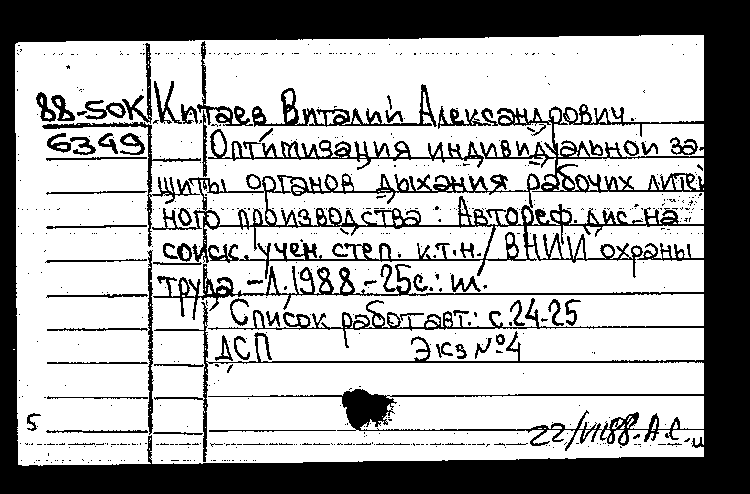 88-50К Китаев Виталий Александрович.
6349 Оптимизация индивидуальной за-
щиты органов дыхания рабочих литей
ного производства: Автореф. дис. на
соиск. учен. степ. к.т.н./ВНИИ охраны
труда. -Л. 1988. -25с.: ил.
Список работ авт.: с. 24-25
ДСП Экз №4
5
22/VII88. А.С.